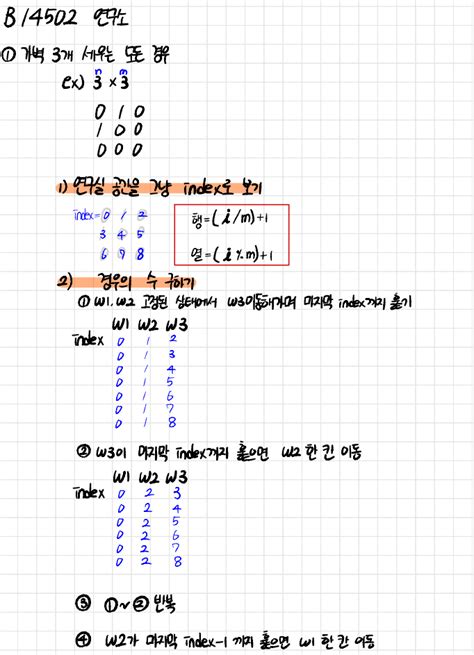 B14502 연구소
① 가벽 3개 세우는 모든 경우
n m
ex) 3 × 3
0 1 0
1 0 0
0 0 0
1) 연구실 공간을 그냥 index로 보기
index = 0 1 2
3 4 5
6 7 8
행 = ( i / m) + 1
열 = ( i % m) + 1
2) 경우의 수 구하기
① W1, W2 고정된 상태에서 W3이동해가며 마지막 index까지 훑기
W1 W2 W3
index 0 1 2
0 1 3
0 1 4
0 1 5
0 1 6
0 1 7
0 1 8
② W3이 마지막 index까지 훑으면 W2 한 칸 이동
W1 W2 W3
index 0 2 3
0 2 4
0 2 5
0 2 6
0 2 7
0 2 8
③ ①~② 반복
④ W2가 마지막 index-1 까지 훑으면 W1 한 칸 이동